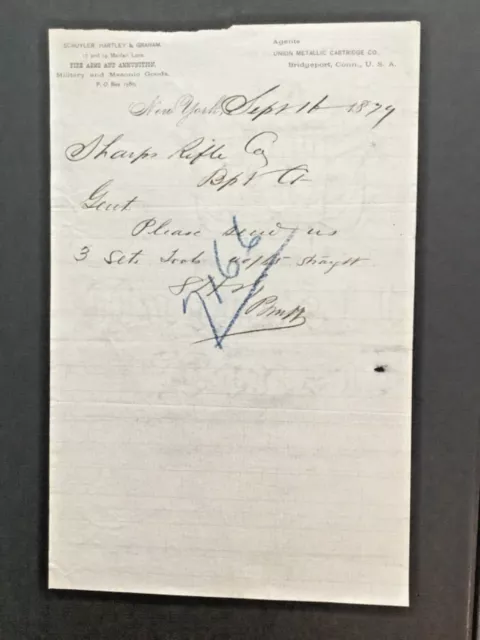 SCHUYLER HARTLEY & GRAHAM.
17 and 19 Maiden Lane.
FINE ARMS AND AMMUNITION.
Military and Masonic Goods.
P. O Box 1760.
Agents
UNION METALLIC CARTRIDGE CO.
Bridgeport, Conn., U. S. A.
New York, Sept 16 1879
Sharps Rifle Co
Bpt Ct
Gent
Please send us
3 Sets Tools straight
S H & G
7166